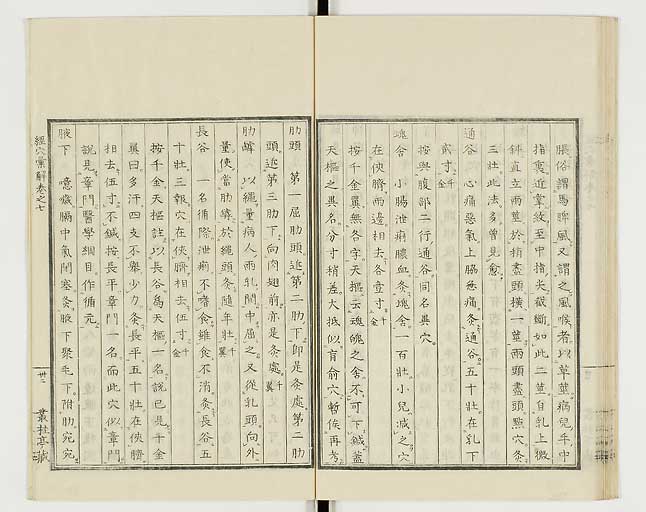 脹俗謂馬脾風又謂之風喉者以草莖病兒手中
指裏近掌紋至中指尖截斷如此二莖自乳上微
斜直立兩莖於梢盡頭橫一莖兩頭盡頭點穴灸
三壯此法多曾見愈
通谷　心痛惡氣上脇急痛灸通谷五十壯在乳下
貳寸千金
按與腹部二行通谷同名異穴
魂舍　小腸泄痢膿血灸魂舍一百壯小兒減之穴
在俠臍兩邊相去各壹寸千金
按千金翼無各字天樞云魂魄之舍不可下鍼蓋
天樞之異名分寸稍差大抵似肓俞穴暫俟再考
肋頭　第一屈肋頭近第二肋下即是灸處第二肋
頭近第三肋下向肉翅前亦是灸處翼
肋罅　以繩量病人兩乳間中屈之又從乳頭向外
量使當肋罅於繩頭灸隨年壯翼
長谷　一名循際泄痢不嗜食雜食不消灸長谷五
十壯三報穴在俠臍相去伍寸千金
按千金天樞註以長谷為天樞一名說已見千金
翼曰多汗四支不擧少力灸長平五十壯在俠臍
相去伍寸不鍼按長平章門一名而此穴似章門
說見章門醫學綱目作循元
腋下　噫噦膈中氣閉塞灸腋下聚毛下附肋宛宛
經穴彙解卷之七
卅二
叢桂亭藏